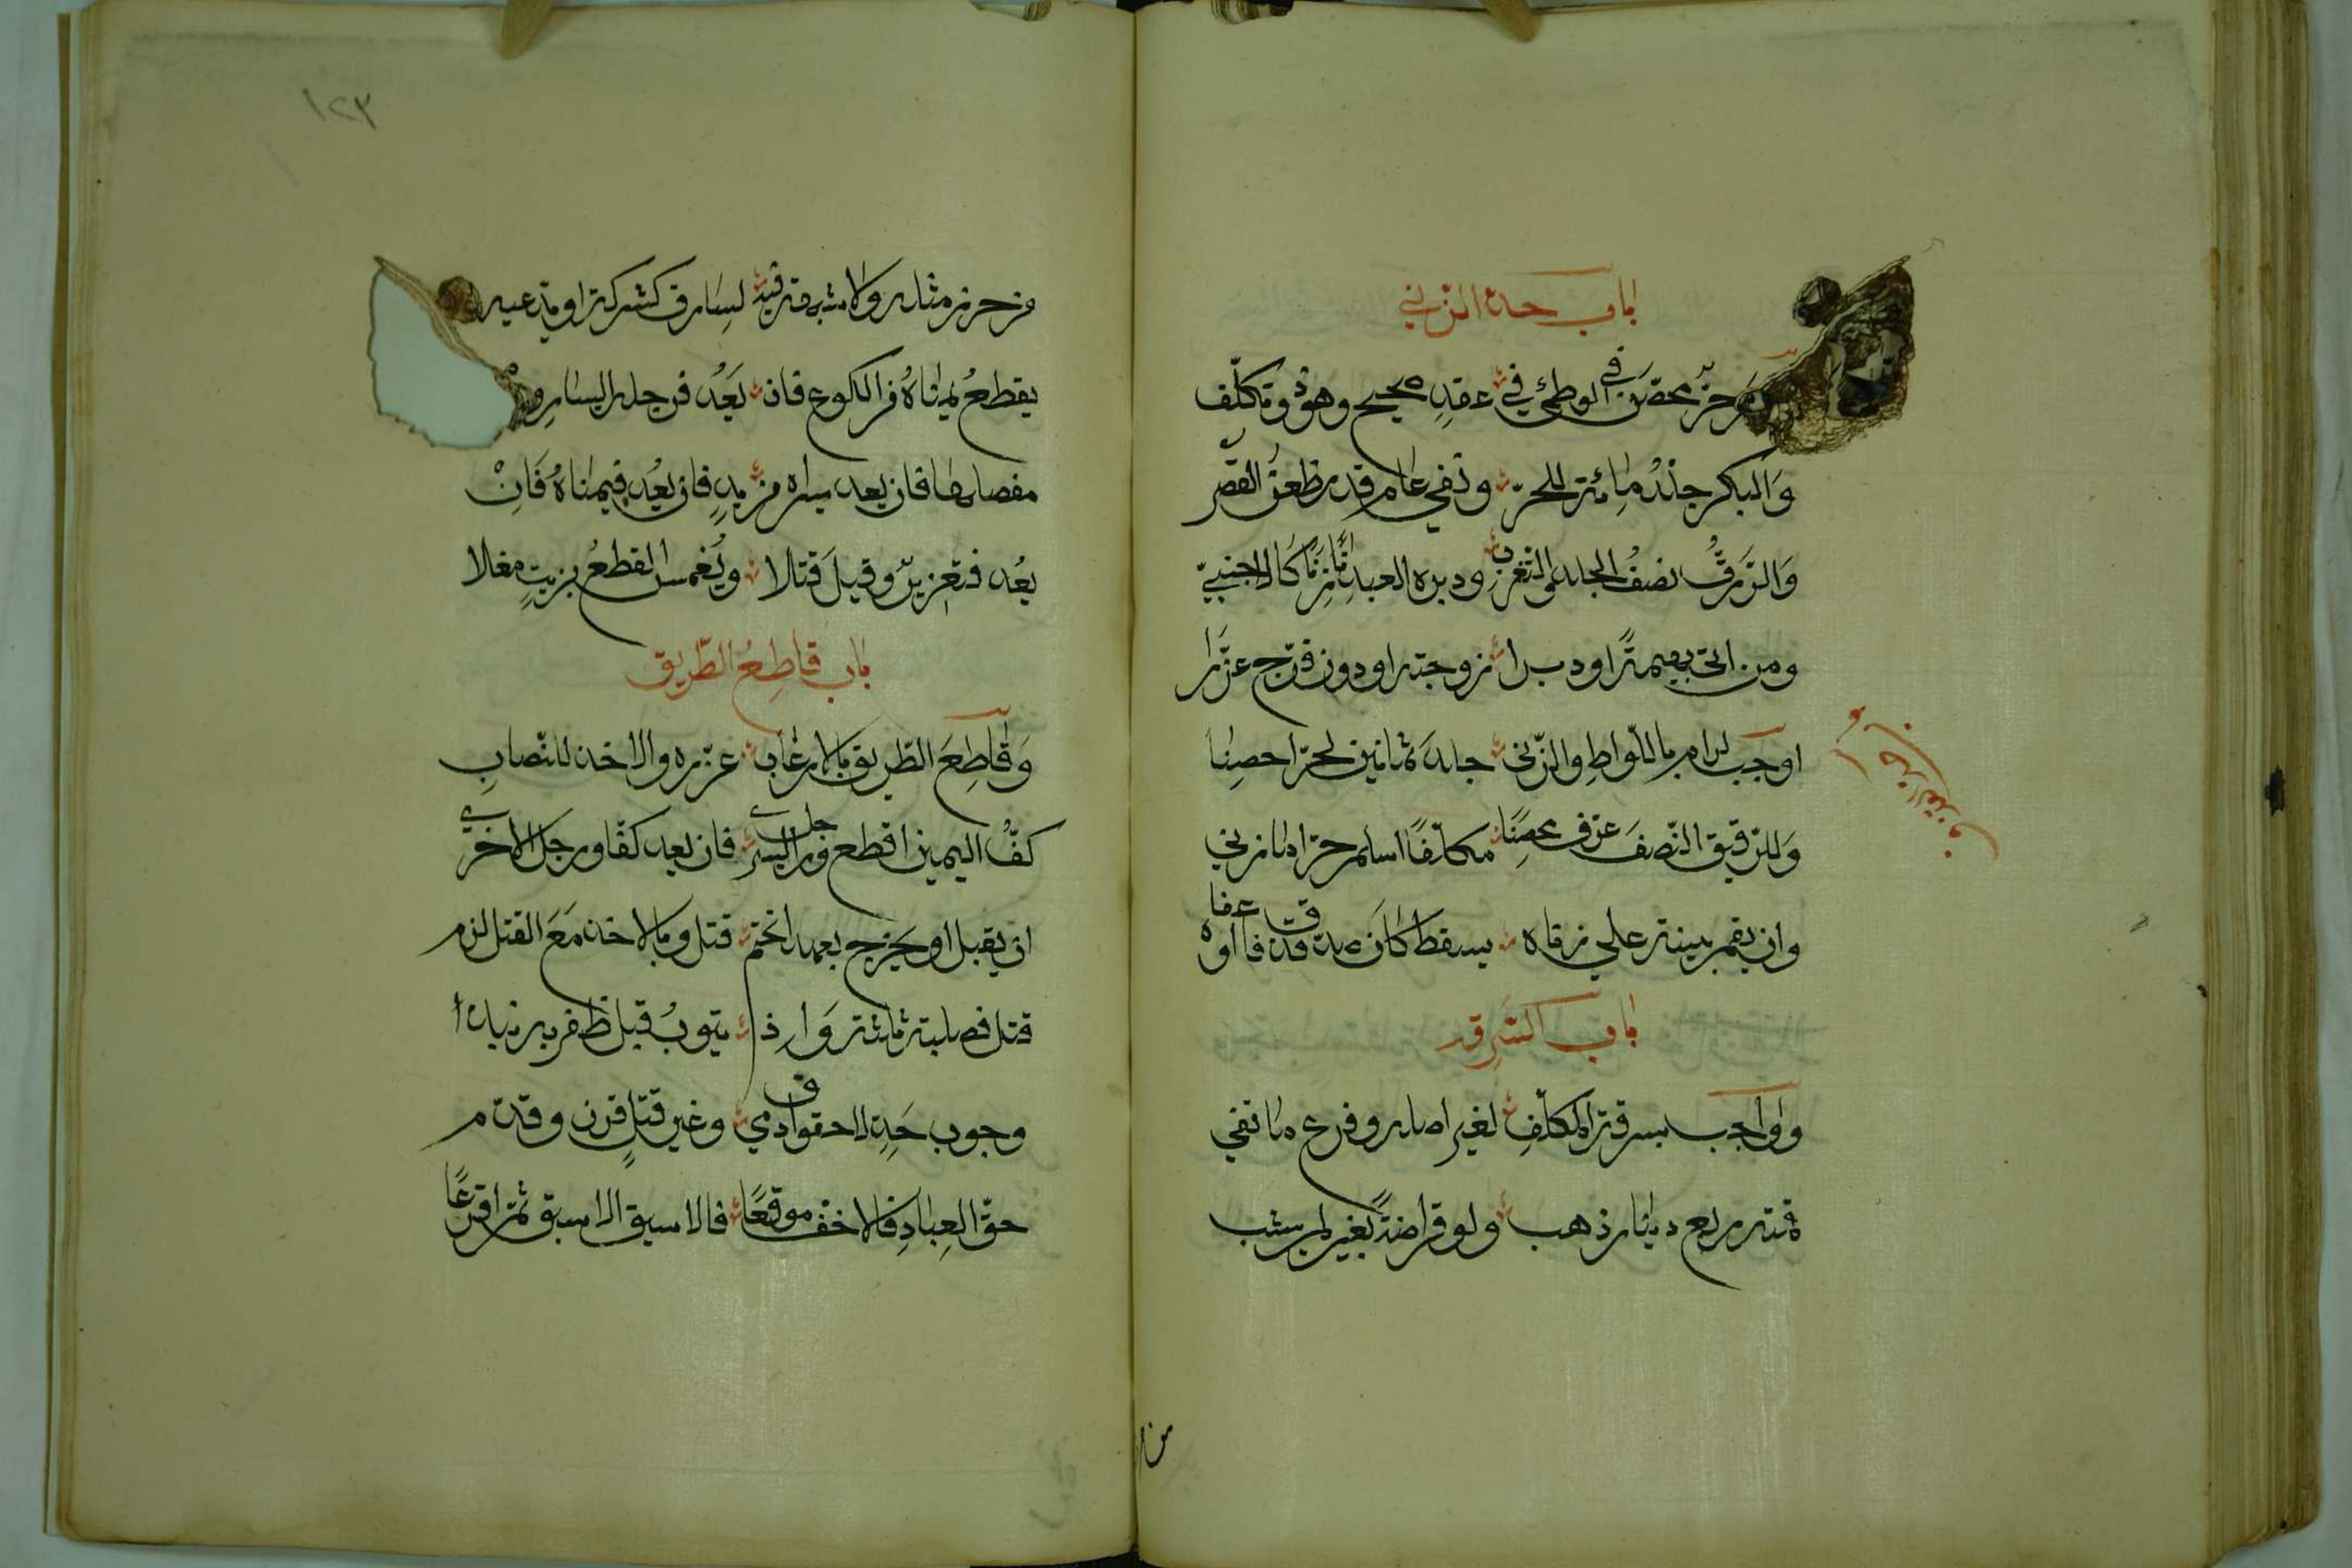 باب حد الزني
حر محصن في الوطئ في عقد صحيح وهو مكلف
والبكر جلد مائة للحر ونفي عام قدر ظعن القصر
والرق نصف الجلد والتغرب ودبر العبد زنا كالاجنبي
ومن اتى بهيمة او دبرا زوجته او دون فرج عزرا
اوجب لرام باللواط والزنى جلد ثمانين لحر احصنا
وللرقيق النصف عرف محصنا مكلفا اسلم حرا ما زني
وان يقم بينة على زناه يسقط كان صدق قذفا او عفا
باب السرقة
وواجب بسرقة المكلف لغير اصله وفرع ما تفي
قيمته ربع دينار ذهب ولو قراضة بغير لم يشب
من
١٢٣
من حرز مثله ولا شبهة فيه لسارق كشركة او يدعيه
يقطع يمناه من الكوع فان يعد فرجله اليسار
مفصلها فان يعد يسراه من يد فان يعد فيمناه فان
يعد فتعزير وقيل قتلا ويغمس القطع بزيت مغلا
باب قاطع الطريق
وقاطع الطريق بالارعاب عزره والاخذ للنصاب
كف اليمين اقطع ورجل اليسرى فان يعد كفا ورجل الاخرى
ان يقتل او يجرح بعمد انختم قتل وبالاخذ مع القتل لزم
قتل فصلبه ثلاثة وار ذا يتوب قبل ظفر به نبذا
وجوب حد لا حقوق ادمي وغير قتل فرق وقدم
حق العباد فالاخف موقعا فالاسبق الاسبق ثم اقرعا